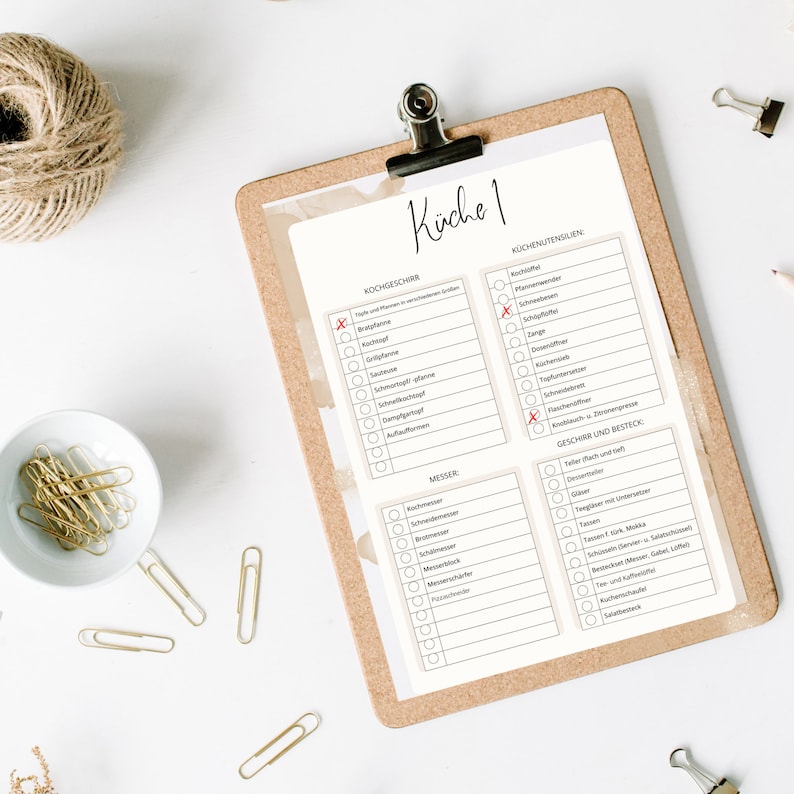 Küche 1
KOCHGESCHIRR
Töpfe und Pfannen in verschiedenen Größen
Bratpfanne
Kochtopf
Grillpfanne
Sauteuse
Schmortopf/ -pfanne
Schnellkochtopf
Dampfgartopf
Auflaufformen
KÜCHENUTENSILIEN:
Kochlöffel
Pfannenwender
Schneebesen
Schöpflöffel
Zange
Dosenöffner
Küchensieb
Topfuntersetzer
Schneidebrett
Flaschenöffner
Knoblauch- u. Zitronenpresse
MESSER:
Kochmesser
Schneidemesser
Brotmesser
Schälmesser
Messerblock
Messerschärfer
Pizzaschneider
GESCHIRR UND BESTECK:
Teller (flach und tief)
Dessertteller
Gläser
Teegläser mit Untersetzer
Tassen
Tassen f. türk. Mokka
Schüsseln (Servier- u. Salatschüssel)
Besteckset (Messer, Gabel, Löffel)
Tee- und Kaffeelöffel
Kuchenschaufel
Salatbesteck